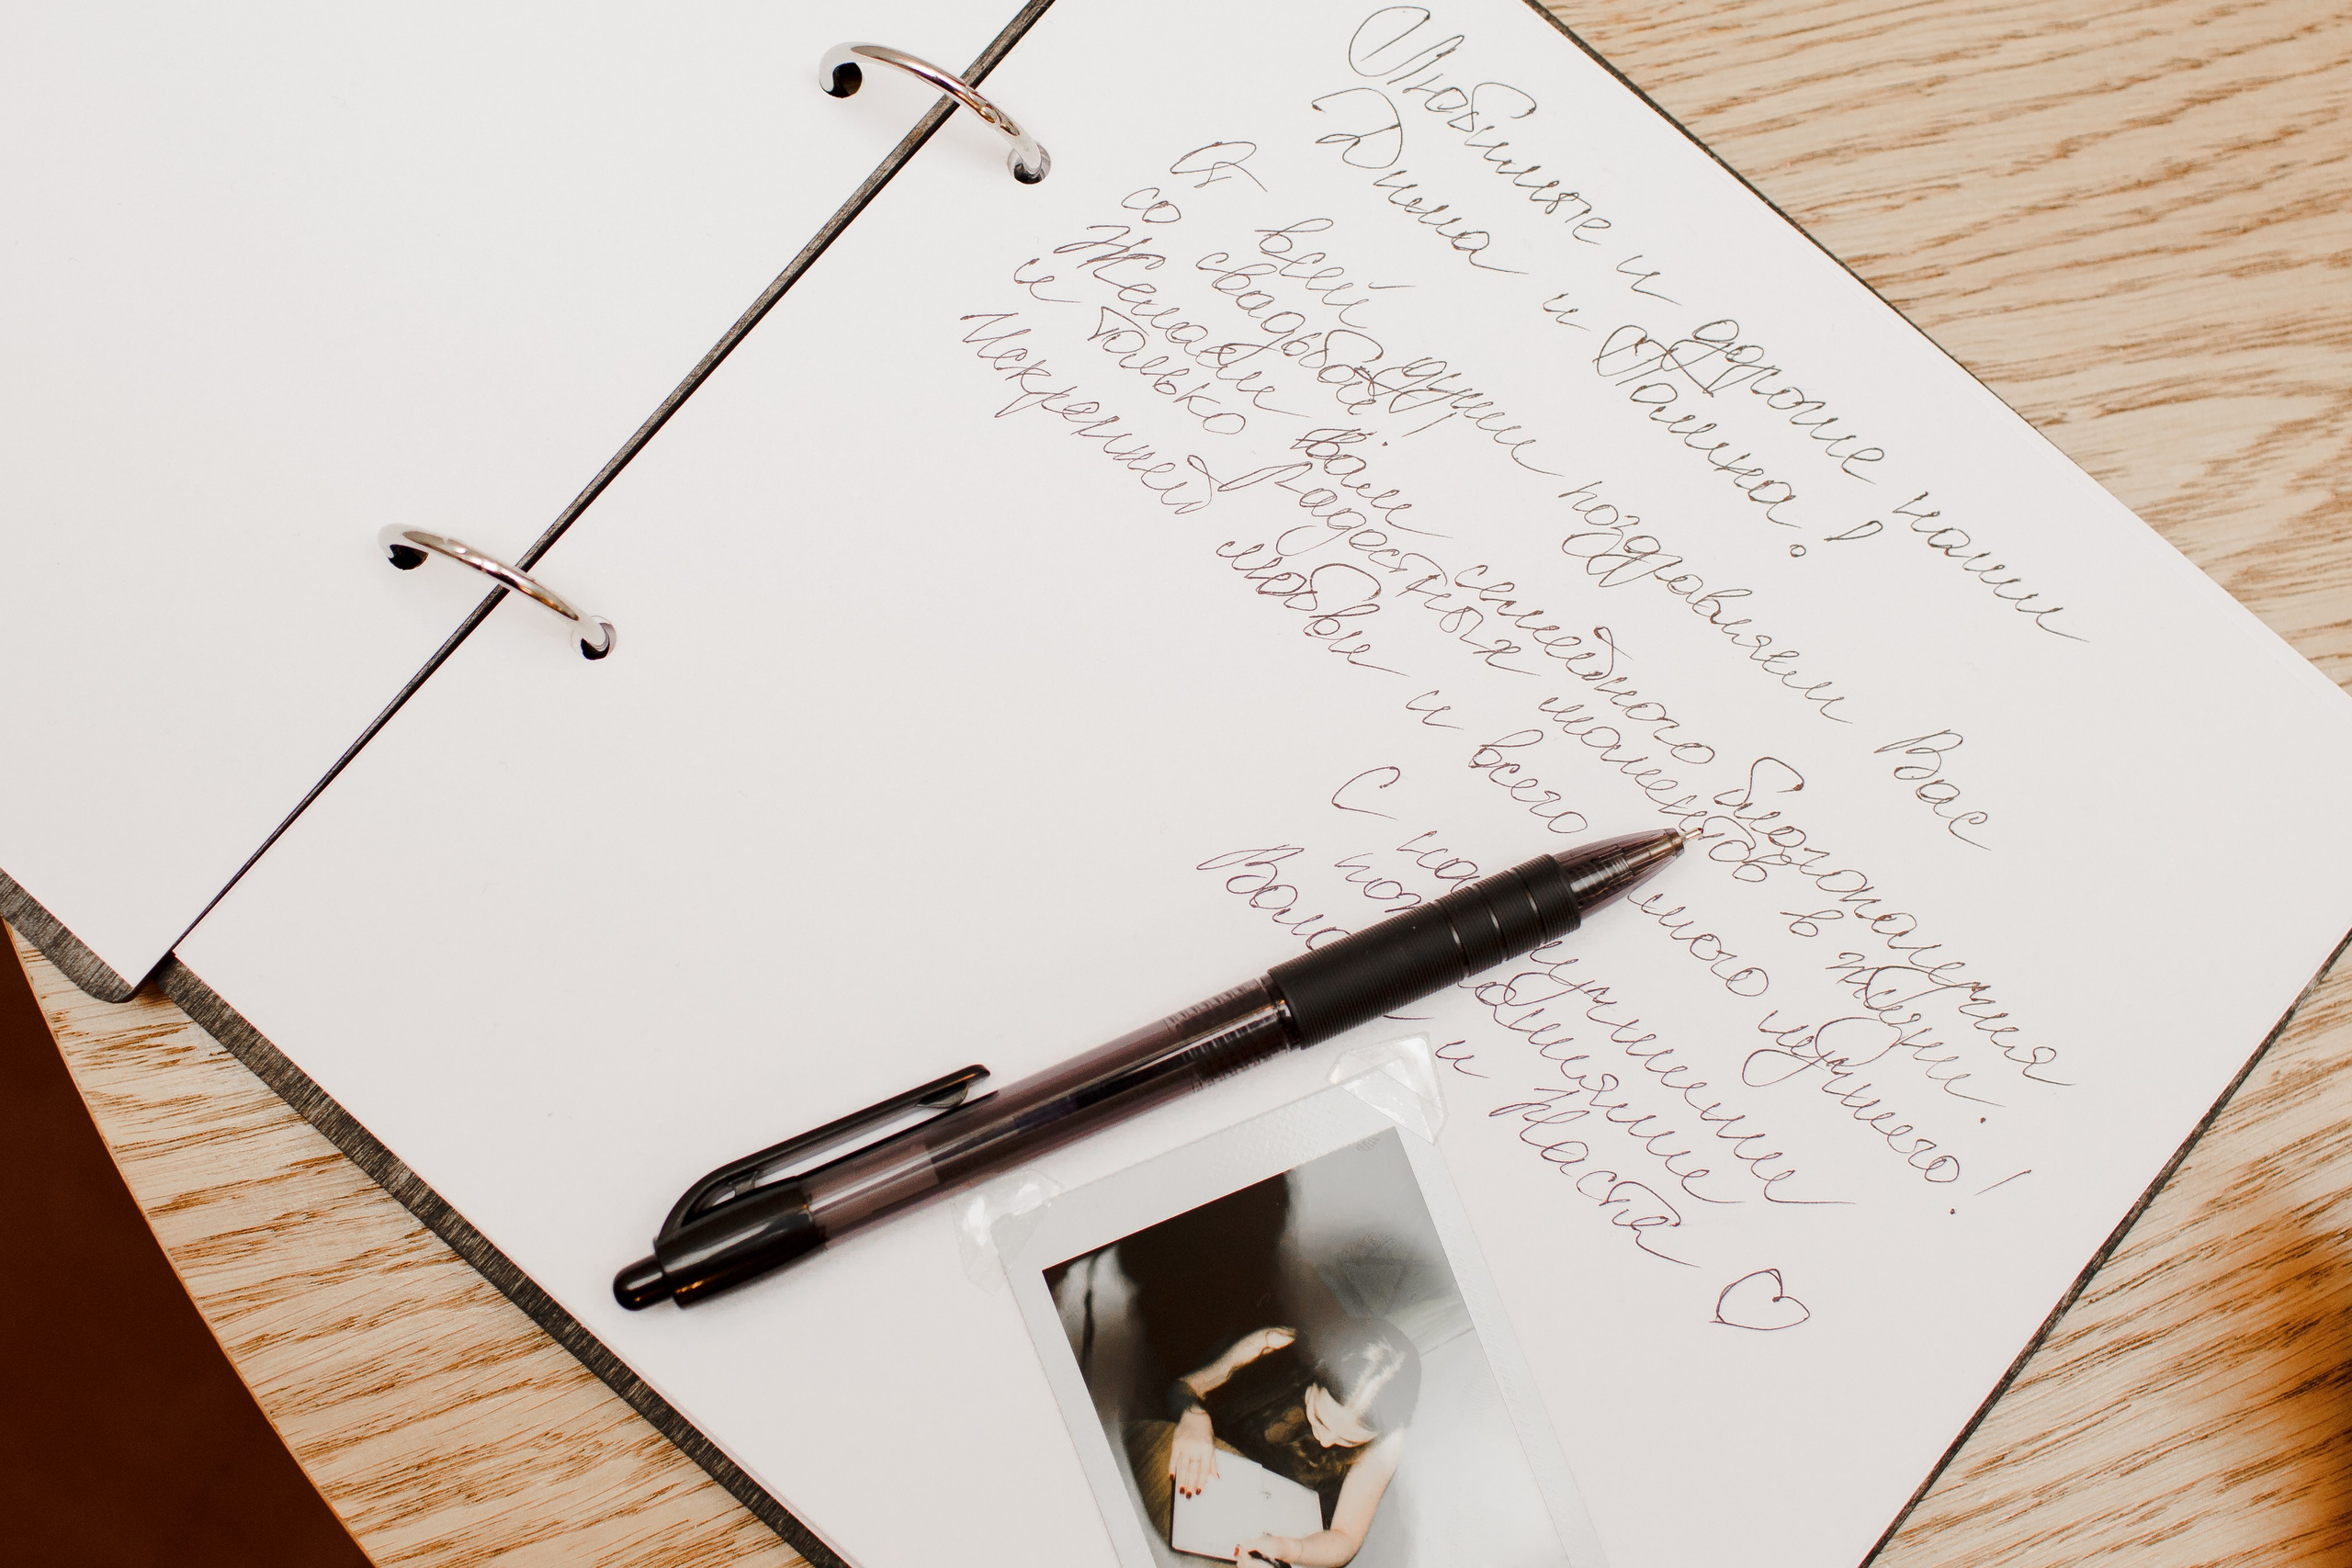 Любимые и дорогие наши
Дима и Полина!
От всей души поздравляем Вас
со свадьбой!
Желаем Вам семейного благополучия
и только радостных моментов в жизни.
Искренней любви и всего лучшего!
С
и Настя ♡